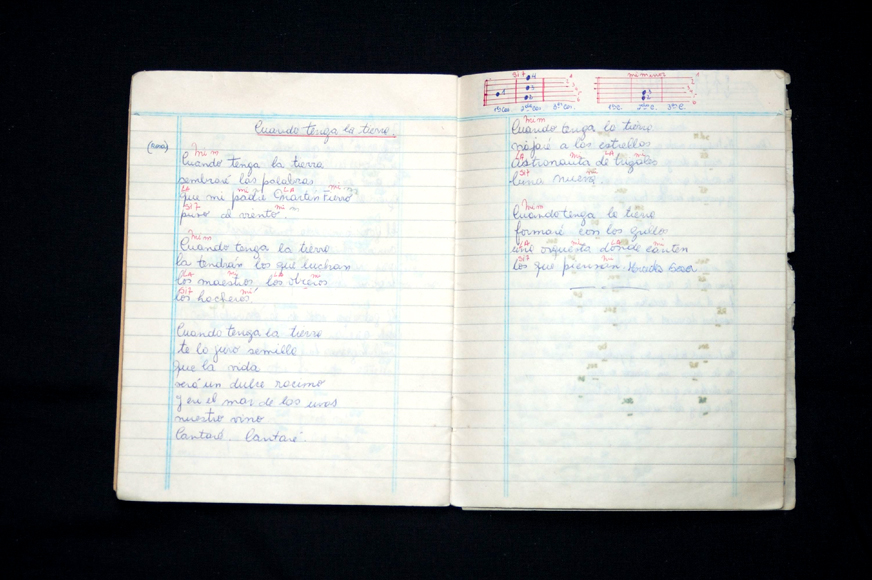 Cuando tenga la tierra.
mi m
Cuando tenga la tierra
sembraré las palabras
LA mi LA mi
que mi padre Martin Fierro
SI7 mi m
puso al viento.
mi m
Cuando tenga la tierra
la tendrán los que luchan
LA mi LA m
los maestros los obreros
SI7 mi
los hacheros
Cuando tenga la tierra
te lo juro semilla
que la vida
será un dulce racimo
y en el mar de las uvas
nuestro vino
Cantaré Cantaré
SI7
4
1 3
2
mi menor
3
2
mi m
Cuando tenga la tierra
a las estrellas
LA mi LA mi
astronauta de trigales
SI7
luna nueva
mi m
Cuando tenga la tierra
formaré con los grillos
LA mi LA mi
una orquesta donde canten
SI7 mi
los que piensan Mercedes Sosa